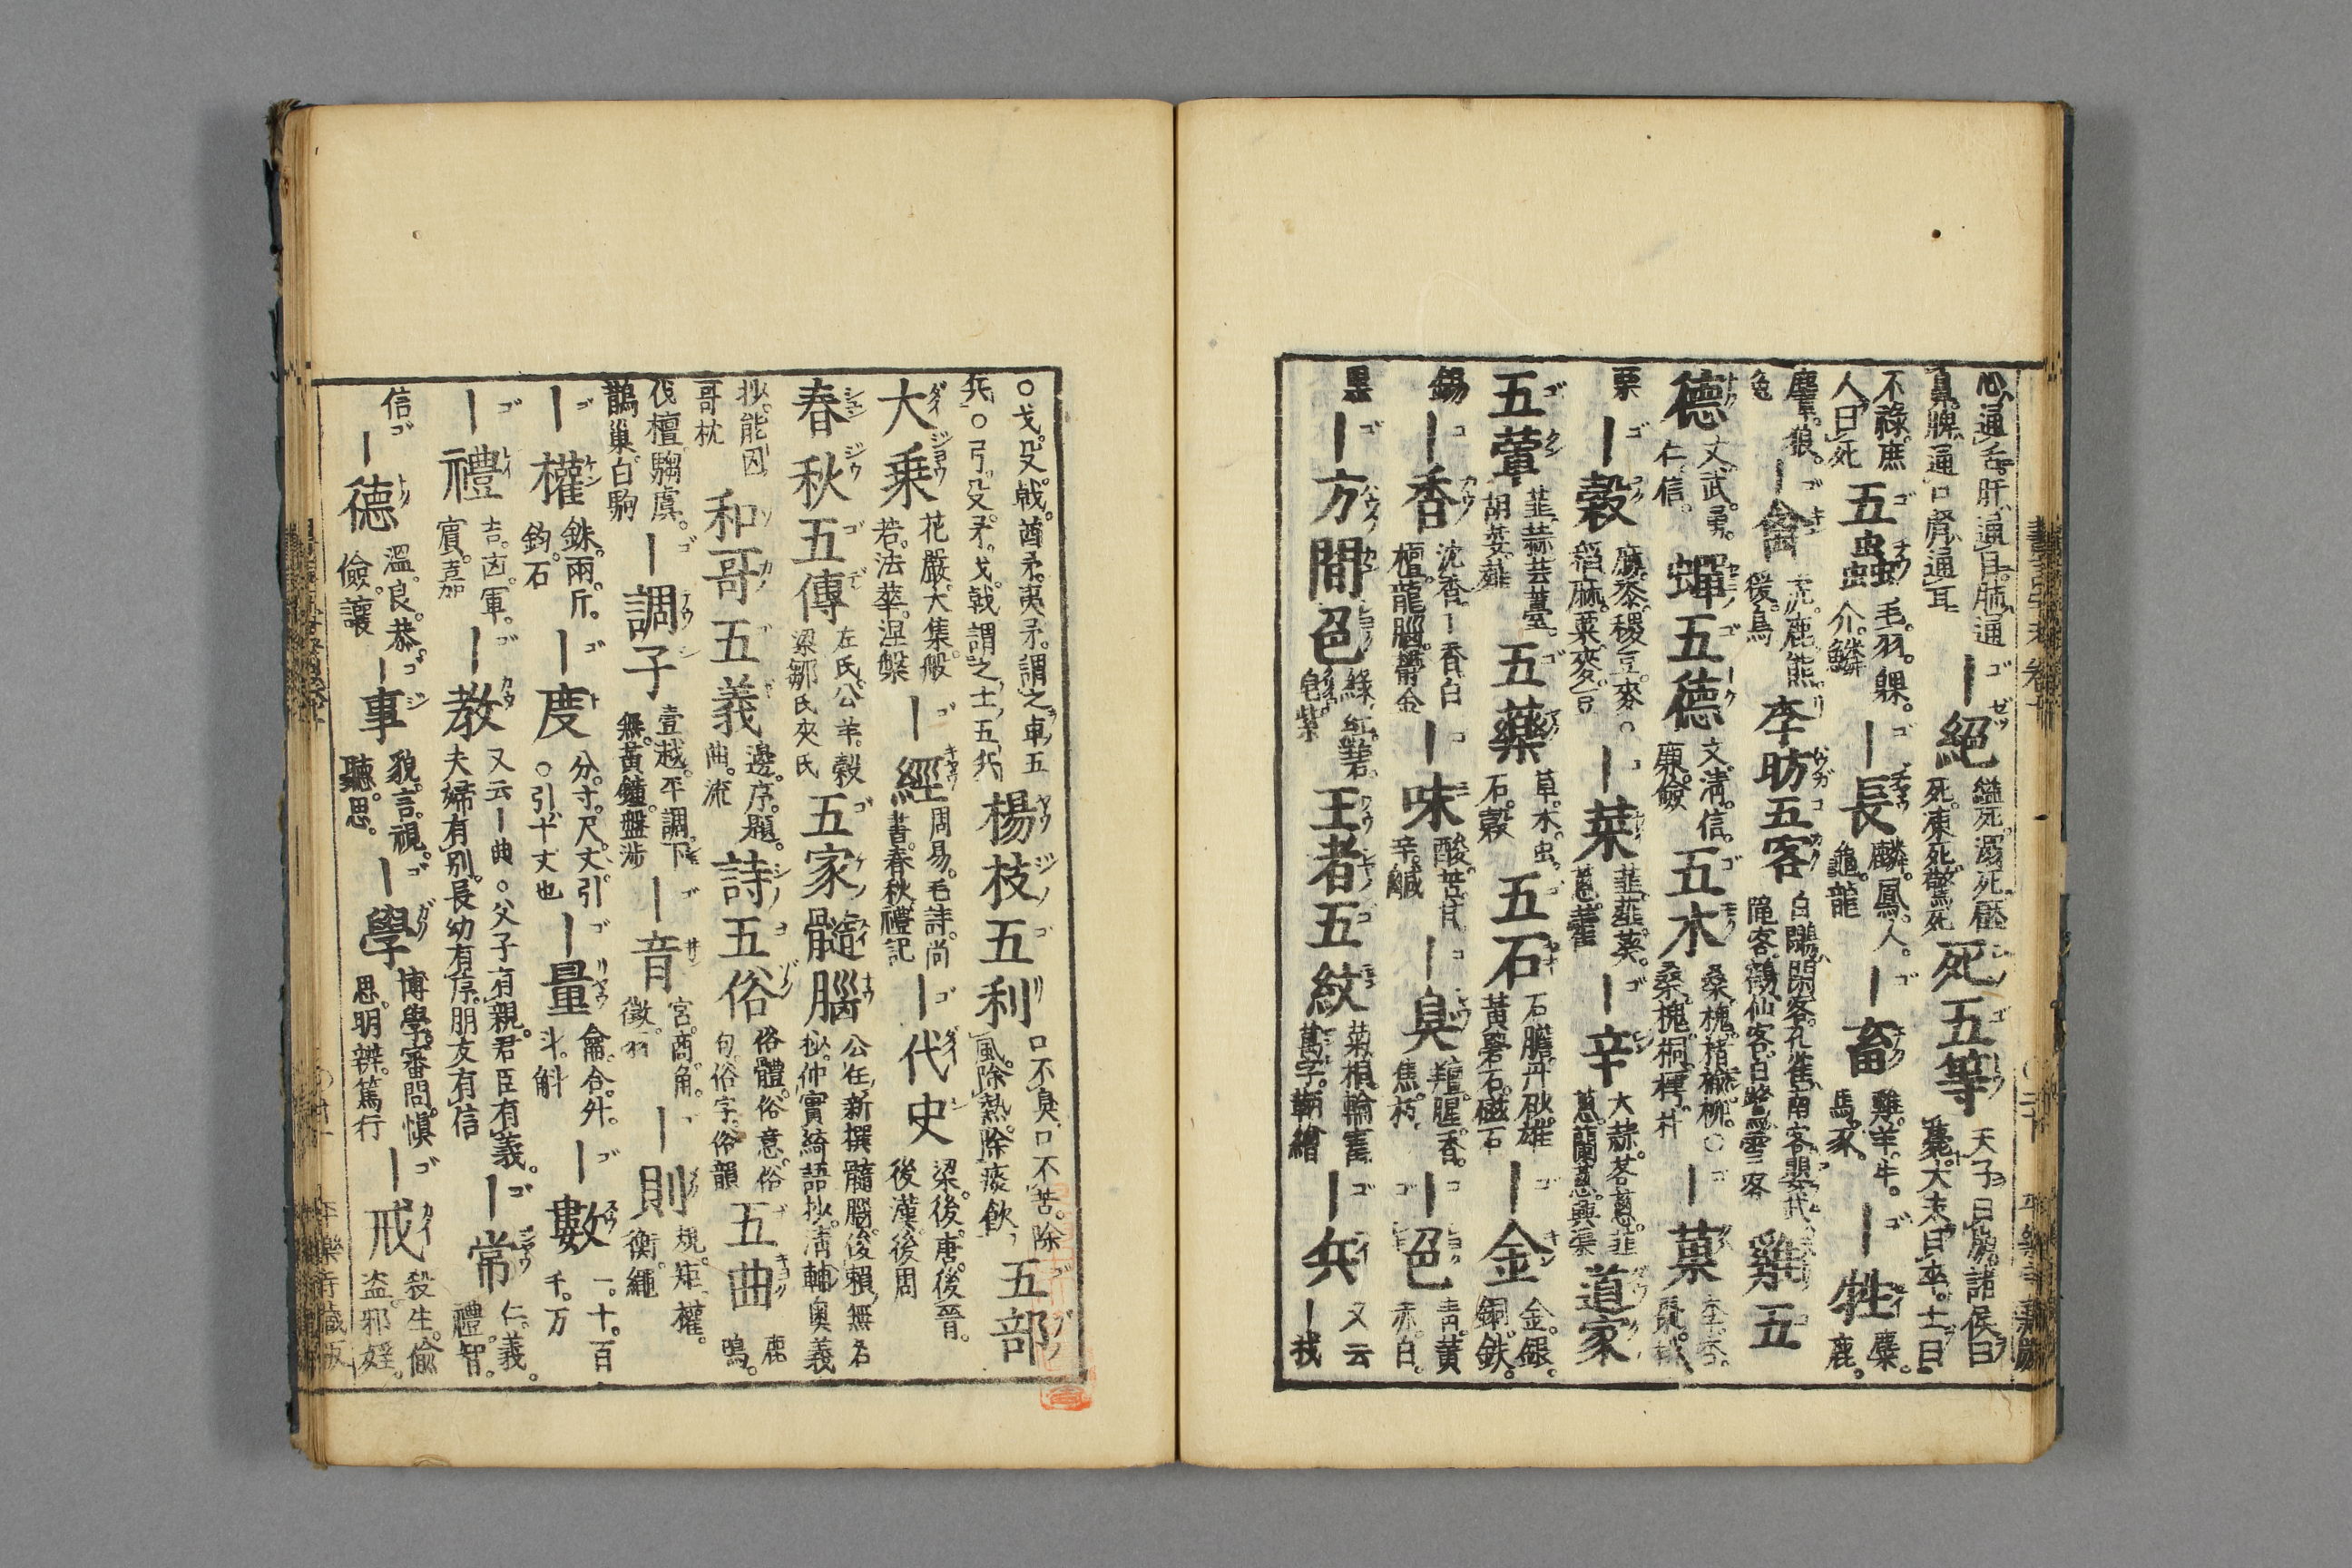 心通舌。肝通目。肺通
鼻。脾通口。腎通耳。
｜絶 縊死。溺死。壓
死。凍死。驚死
死五等 天子曰崩。諸侯曰
薨。大夫曰卒。士曰
不祿。庶
人曰死
五蟲 毛。羽。躶。
介。鱗
｜長 麟。鳳。人。
龜。龍
｜畜 雞。羊。牛。
馬。豕。
｜牲 麋。
鹿。
麞。狼。
兔
｜禽
李昉五客 白鷴閑客。孔雀南客。
鶴仙客。白鷺雪客
雞五
德 文。武。勇。
仁。信。
蟬五德 文。清。信。
廉。儉
五木 桑。槐。楮。榆。柳。○
桑。槐。桐。樗。朴
｜菓 李。杏。
栗
｜穀 麻。黍。稷。豆。麥。○
稻。麻。粟。麥。豆
｜菜
｜辛 大蒜。茖葱。韮
葱。蘭葱。興渠
道家
五葷 韮。蒜。芸薹。
胡荽。薤
五藥 草。木。虫。
石。穀
五石 石膽。丹砂。雄
黃。礬石。磁石
｜金 金。銀。
銅。鉄。
錫
｜香 沈香。｜香。白
檀。龍腦。欝金
｜味 酸。苦。甘。
辛。鹹
｜臭 羶。腥。香。
焦。朽。
｜色 青。黃
赤。白。
黒
｜方間色 綠。紅。碧。
皂。紫
王者五紋
｜兵 又云
｜戎
○戈。殳。戟。酋矛。夷矛。謂之車五
兵。○弓。殳。矛。戈。戟謂之士五兵
楊枝五利 口不臭。口不苦。除
風。除熱。除痰飲
五部
大乗 花嚴。大集。般
若。法華。涅槃
｜經 周易。毛詩。尚
書。春秋。禮記
｜代史 梁。後唐。後晉。
後漢。後周
春秋五傳 左氏。公羊。穀
梁。鄒氏。夾氏
五家髓腦 公任新撰髓腦。俊賴無名
抄。仲實綺語抄。清輔奧義
抄。能因
哥枕
和哥五義 邊。序。題。
曲。流
詩五俗 俗體。俗意。俗
句。俗字。俗韻
五曲 鹿
鳴。
伐檀。騶虞。
鵲巢。白駒
｜調子 壹越。平調。下
無。黃鐘。盤涉
｜音 宮。商。角。
徵。羽
｜則 規。矩。權。
衡。繩
｜權 銖。兩。斤。
鈞。石
｜度 分。寸。尺。丈。引
○引ハ十丈也
｜量 龠。合。升。
斗。斛
｜數 一。十。百。
千。万
｜禮 吉。凶。軍。
賓。嘉
｜教 又云｜典 ○父子有親。君臣有義。
夫婦有別。長幼有序。朋友有信
｜常 仁。義。
禮。智。
信
｜德 溫。良。恭。
儉。讓
｜事 貌。言。視。
聽。思。
｜學 博學。審問。愼
思。明辨。篤行
｜戒 殺生。偸
盗。邪婬。
平樂寺藏版